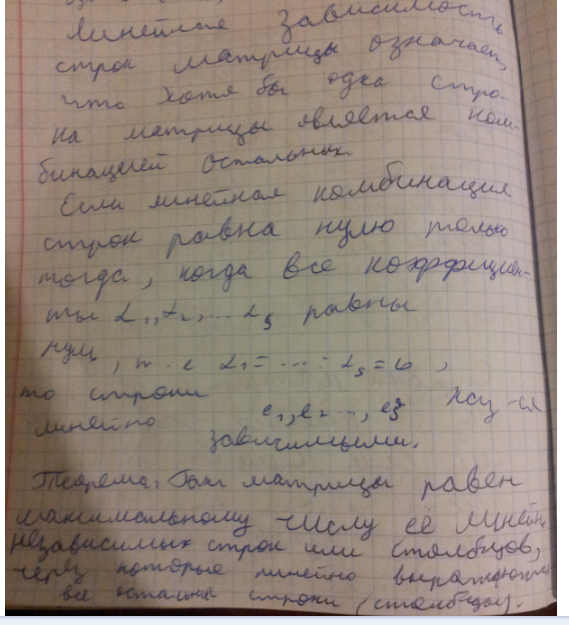 Линейная зависимость
строк матрицы означает,
что хотя бы одна стро-
ка матрицы является ком-
бинацией остальных.
Если линейная комбинация
строк равна нулю только
тогда, когда все коэффициен-
ты α₁, α₂, ... αs равны
нулю, т. е α₁ = ... = αs = 0,
то строки e₁, e₂ ..., es наз-ся
линейно зависимыми.
Теорема. Ранг матрицы равен
максимальному числу её линейн.
независимых строк или столбцов,
через которые линейно выражаются
все остальные строки (столбцы).